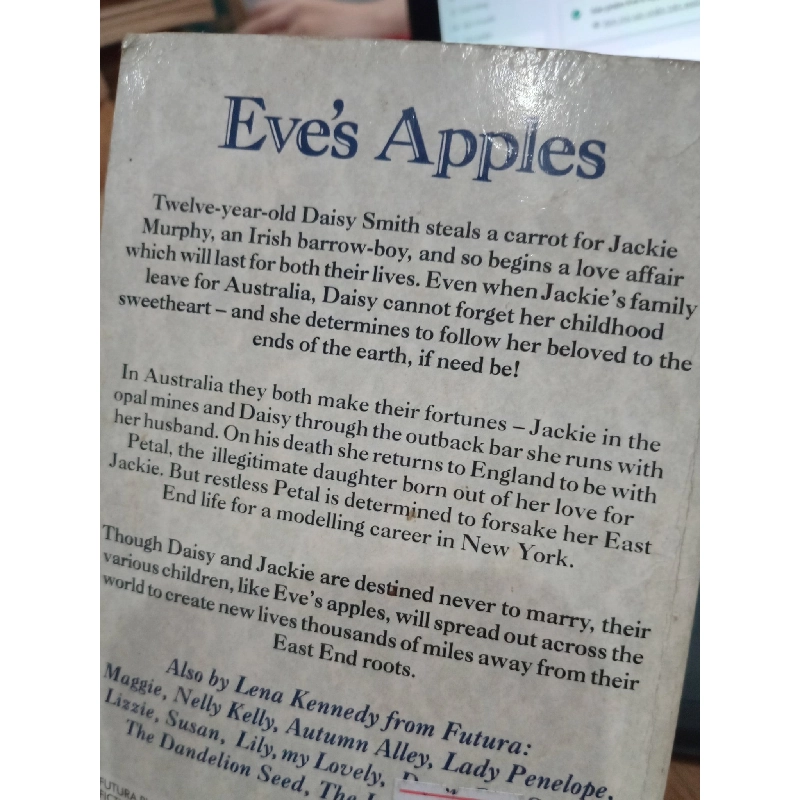 Eve's Apples
Twelve-year-old Daisy Smith steals a carrot for Jackie
Murphy, an Irish barrow-boy, and so begins a love affair
which will last for both their lives. Even when Jackie's family
leave for Australia, Daisy cannot forget her childhood
sweetheart – and she determines to follow her beloved to the
ends of the earth, if need be!
In Australia they both make their fortunes – Jackie in the
opal mines and Daisy through the outback bar she runs with
her husband. On his death she returns to England to be with
Petal, the illegitimate daughter born out of her love for
Jackie. But restless Petal is determined to forsake her East
End life for a modelling career in New York.
Though Daisy and Jackie are destined never to marry, their
various children, like Eve's apples, will spread out across the
world to create new lives thousands of miles away from their
East End roots.
Also by Lena Kennedy from Futura:
Maggie, Nelly Kelly, Autumn Alley, Lady Penelope,
Lizzie, Susan, Lily, my Lovely,
The Dandelion Seed, The
FUTURA